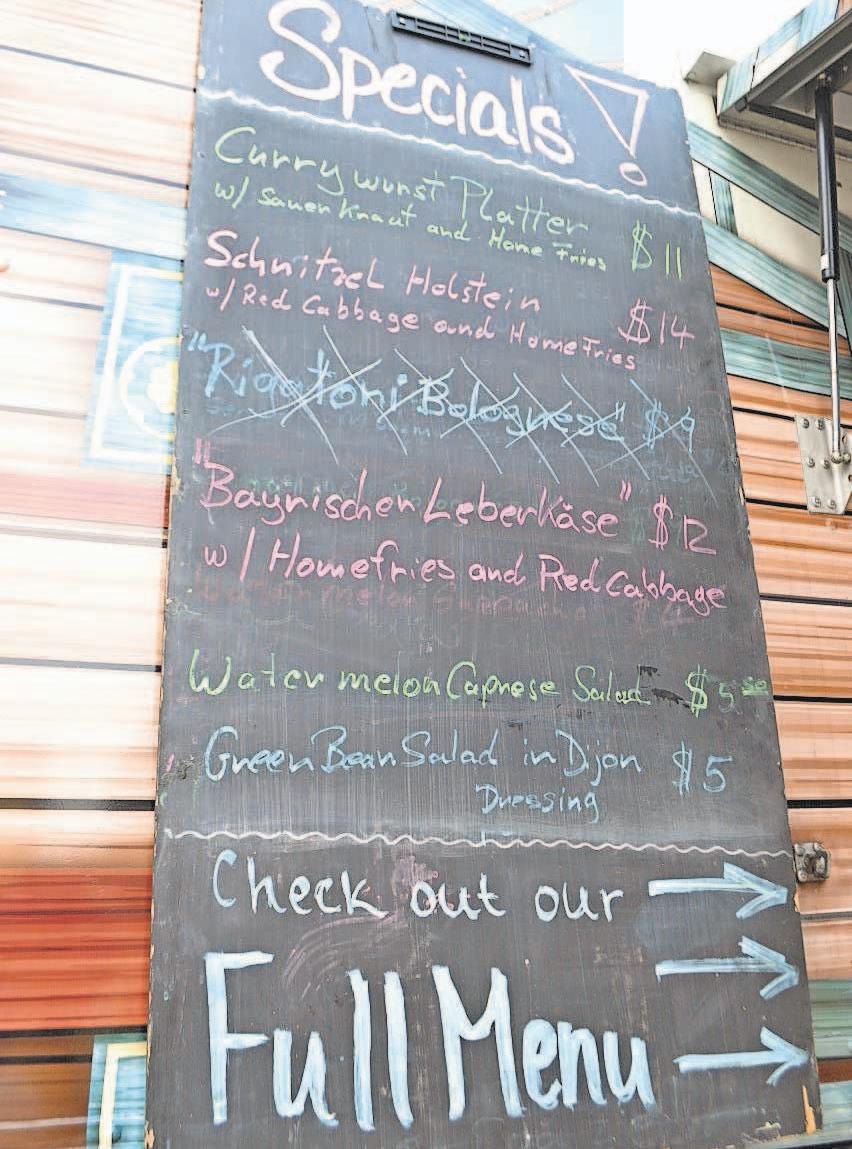 Specials!
Currywurst Platter
w/ Sauerkraut and Home Fries $11
Schnitzel Holstein
w/ Red Cabbage and HomeFries $14
"Rigatoni Bolognese" $9
"Bayrischer Leberkäse" $12
w/ Homefries and Red Cabbage
Watermelon Caprese Salad $5.50
Green Bean Salad in Dijon $5
Dressing
Check out our →
→
Full Menu →